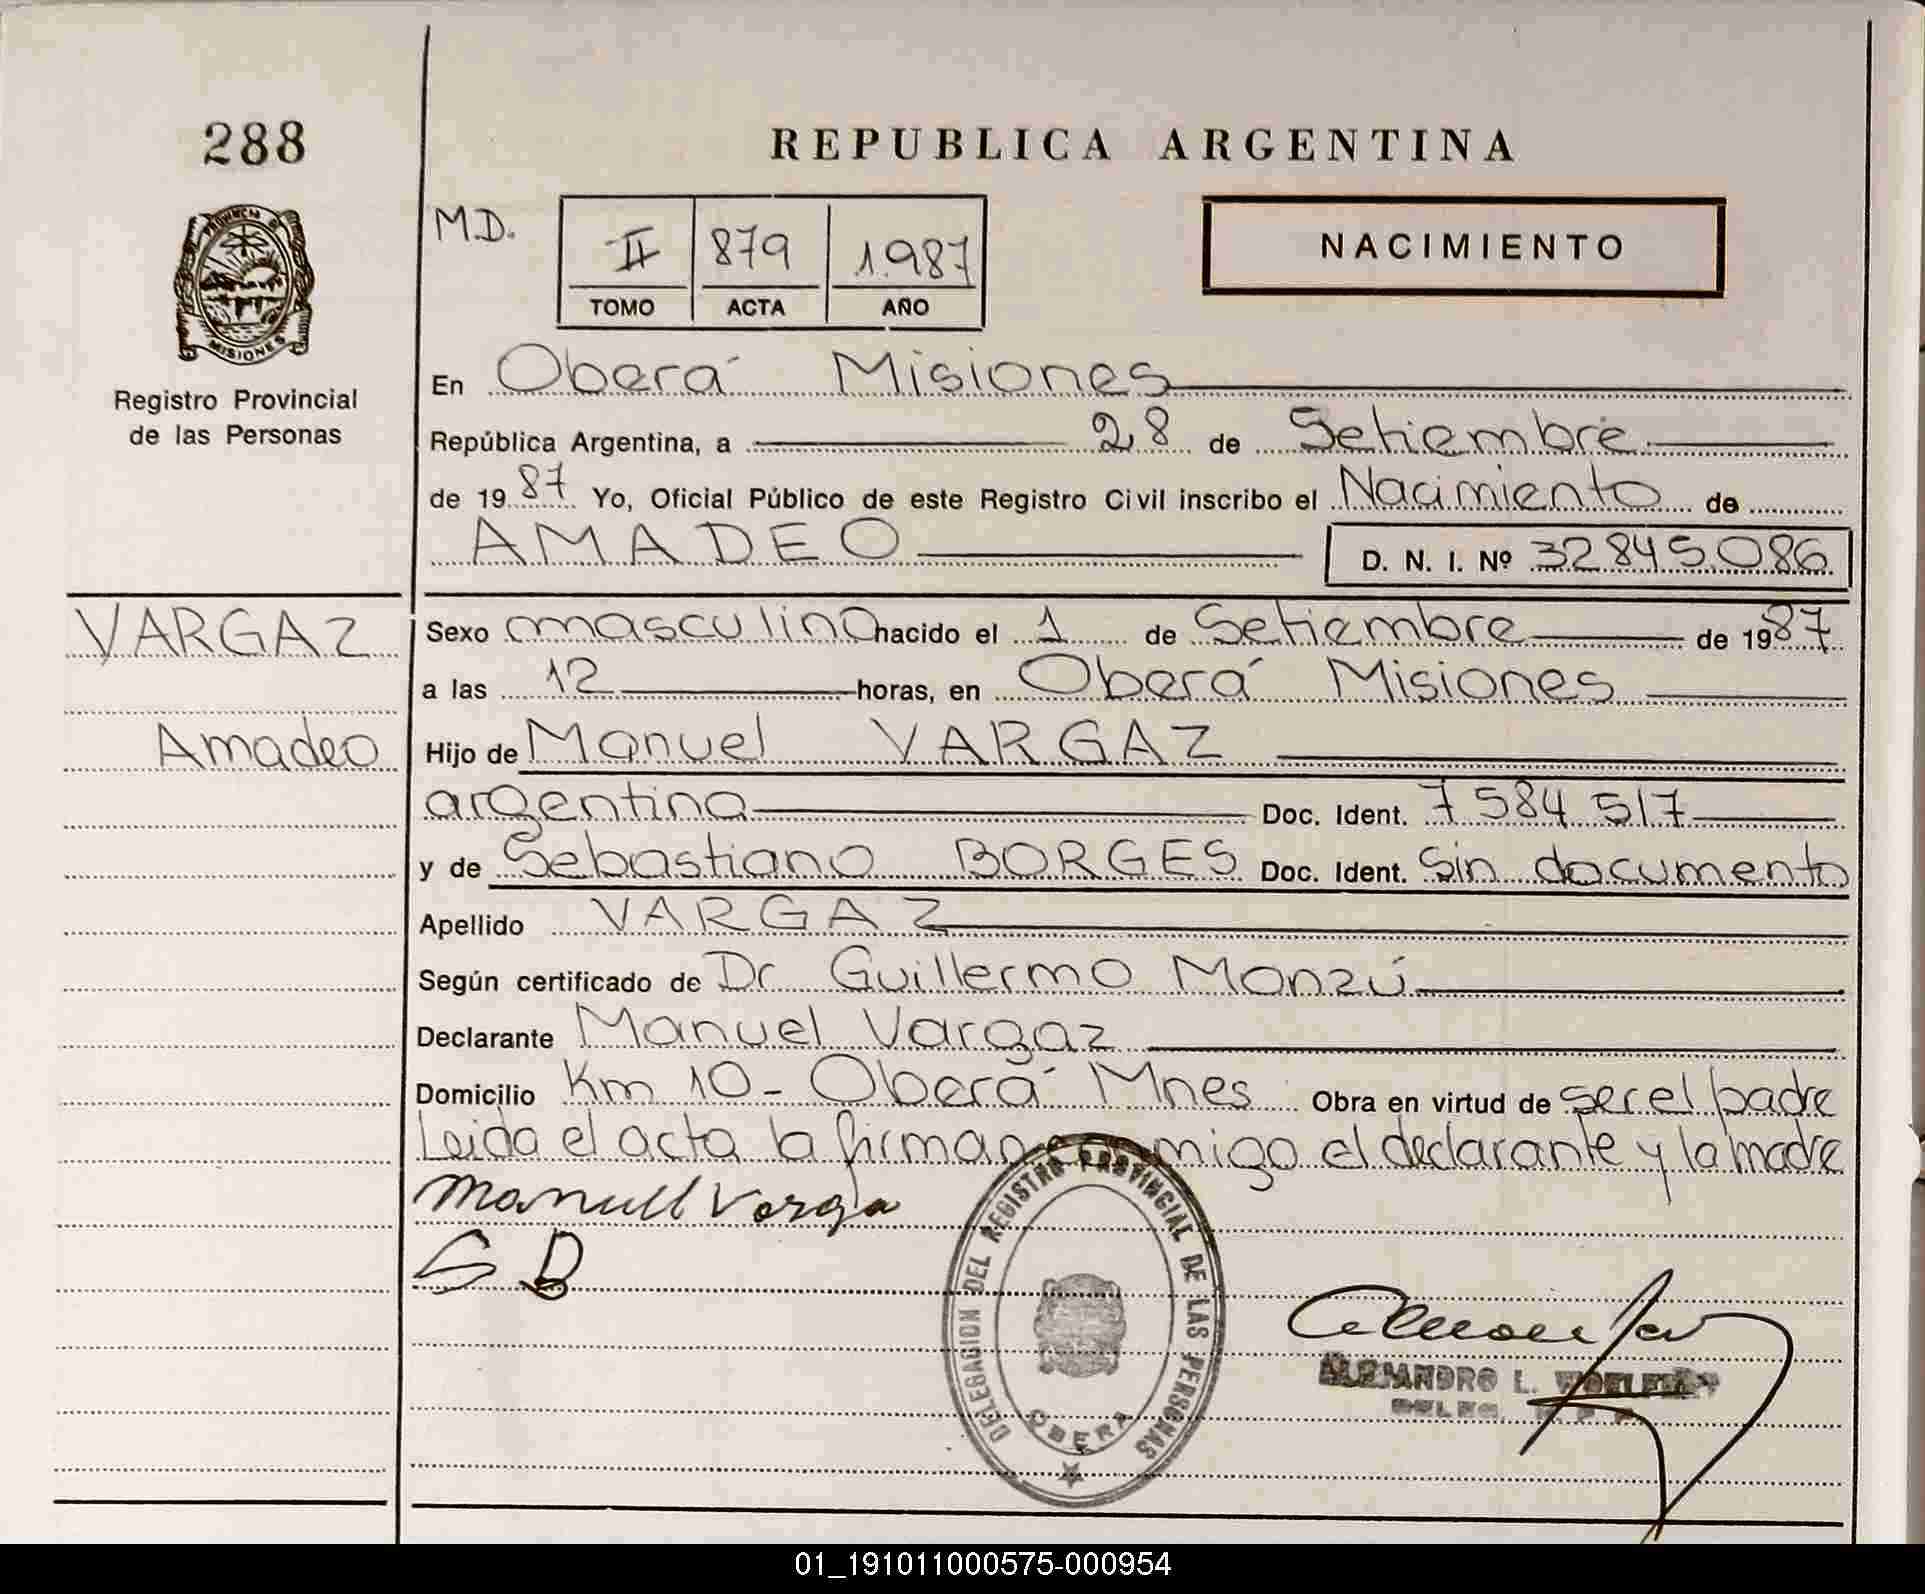 288
REPUBLICA ARGENTINA
PROVINCIA DE
MISIONES
Registro Provincial
de las Personas
M.D.
II 879 1.987
TOMO ACTA AÑO
NACIMIENTO
En Oberá Misiones
República Argentina, a 28 de Setiembre
de 1987 Yo, Oficial Público de este Registro Civil inscribo el Nacimiento de
AMADEO D. N. I. Nº 32845.086
VARGAZ
Amadeo
Sexo masculino nacido el 1 de Setiembre de 1987
a las 12 horas, en Oberá Misiones
Hijo de Manuel VARGAZ
argentina Doc. Ident. 7 584 517
y de Sebastiana BORGES Doc. Ident. Sin documento
Apellido VARGAZ
Según certificado de Dr Guillermo Monzú
Declarante Manuel Vargaz
Domicilio Km 10 - Oberá Mnes Obra en virtud de ser el padre
Leida el acta la firman conmigo el declarante y la madre
Manuell Varga
S B
DELEGACION DEL REGISTRO PROVINCIAL DE LAS PERSONAS
OBERA
ALEJANDRO L.
01_191011000575-000954